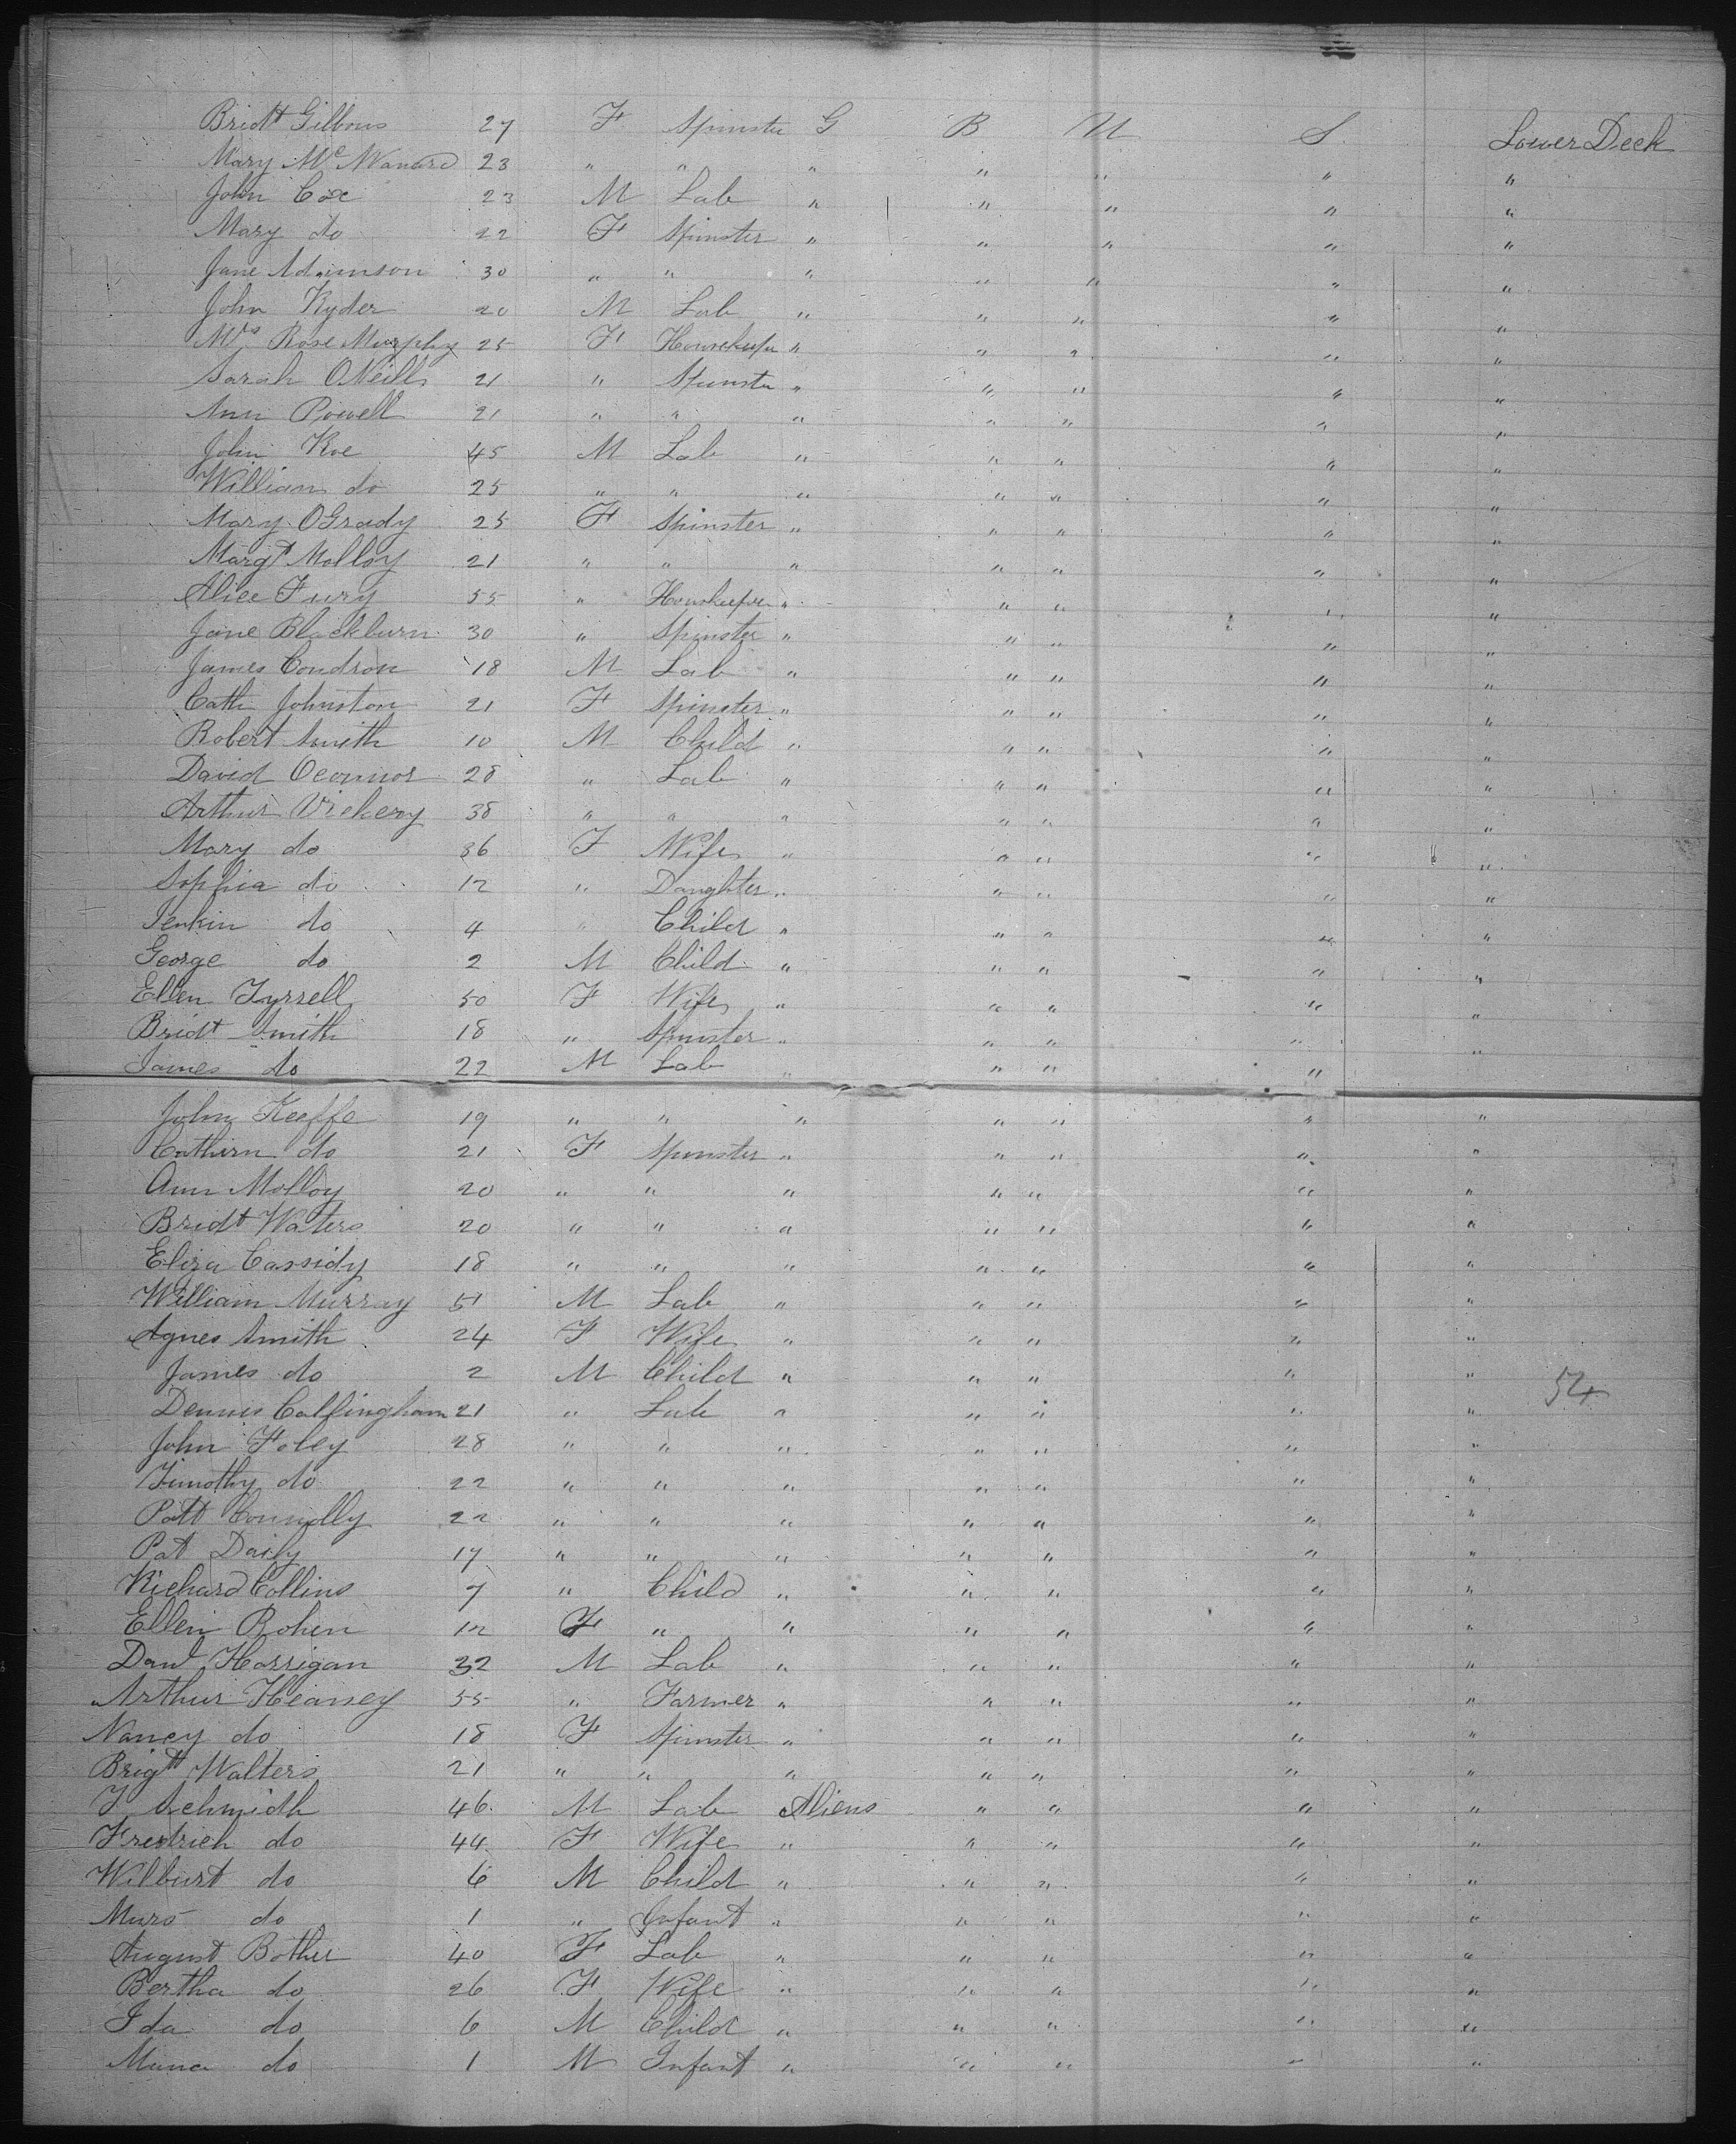 Bridt Gilbons 27 F Spinster G B U S Lower Deck
Mary Mc Manard 23 " " " " " " "
John Cox 23 M Lab " " " " "
Mary do 22 F Spinster " " " " "
Jane Adamson 30 " " " " " " "
John Ryder 20 M Lab " " " " "
Mrs Rose Murphy 25 F Housekeeper " " " " "
Sarah ONeill 21 " Spinster " " " " "
Ann Powell 21 " " " " " " "
John Roe 45 M Lab " " " " "
William do 25 " " " " " " "
Mary OGrady 25 F Spinster " " " " "
Margt Molloy 21 " " " " " " "
Alice Fury 55 " Housekeeper " " " " "
Jane Blackburn 30 " Spinster " " " " "
James Condron 18 M Lab " " " " "
Cath Johnston 21 F Spinster " " " " "
Robert Smith 10 M Child " " " " "
David Oconnor 28 " Lab " " " " "
Arthur Vickery 38 " " " " " " "
Mary do 36 F Wife " " " " "
Sophia do 12 " Daughter " " " " "
Jenkin do 4 " Child " " " " "
George do 2 M Child " " " " "
Ellen Tyrrell 50 F Wife " " " " "
Bridt Smith 18 " Spinster " " " " "
James do 22 M Lab " " " " "
John Keeffe 19 " " " " " " "
Cathirn do 21 F Spinster " " " " "
Ann Molloy 20 " " " " " " "
Bridt Waters 20 " " " " " " "
Eliza Cassidy 18 " " " " " " "
William Murray 51 M Lab " " " " "
Agnes Smith 24 F Wife " " " " "
James do 2 M Child " " " " " 54
Dennis Callingham 21 " Lab " " " " "
John Foley 28 " " " " " " "
Timothy do 22 " " " " " " "
Patt Connolly 22 " " " " " " "
Pat Daily 17 " " " " " " "
Richard Collins 7 " Child " " " " "
Ellen Rohen 12 F " " " " " "
Danl Harrigan 32 M Lab " " " " "
Arthur Heaney 55 " Farmer " " " " "
Nancy do 18 F Spinster " " " " "
Brigtt Walters 21 " " " " " " "
J Schmidh 46 M Lab Aliens " " " "
Fredrich do 44 F Wife " " " " "
Wilburt do 6 M Child " " " " "
do 1 " Infant " " " " "
August Bother 40 F Lab " " " " "
Bertha do 26 F Wife " " " " "
Ida do 6 M Child " " " " "
Muna do 1 M Infant " " " " "